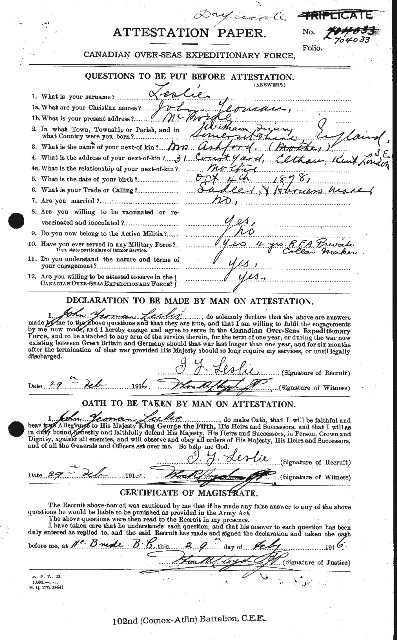 TRIPLICATE
ATTESTATION PAPER.
No. 704033
704033
Folio.
CANADIAN OVER-SEAS EXPEDITIONARY FORCE.
QUESTIONS TO BE PUT BEFORE ATTESTATION.
(ANSWERS)
1. What is your surname? Leslie
1a. What are your Christian names? John Yeoman
1b. What is your present address? McBride
2. In what Town, Township or Parish, and in what Country were you born? England
3. What is the name of your next-of-kin? Mrs. Ashford (Mother)
4. What is the address of your next-of-kin? 31 Court Yard, Eltham Kent London S.E.
4a. What is the relationship of your next-of-kin? Mother
5. What is the date of your birth? Oct 4th 1878
6. What is your Trade or Calling? Saddler & Harness Maker
7. Are you married? No,
8. Are you willing to be vaccinated or re-vaccinated and inoculated? Yes,
9. Do you now belong to the Active Militia? No
10. Have you ever served in any Military Force? Yes 4 yrs R.F.A. Private
If so, state particulars of former Service. Collar Maker
11. Do you understand the nature and terms of your engagement? Yes,
12. Are you willing to be attested to serve in the CANADIAN OVER-SEAS EXPEDITIONARY FORCE? Yes.
DECLARATION TO BE MADE BY MAN ON ATTESTATION.
I, John Yeoman Leslie, do solemnly declare that the above are answers
made by me to the above questions and that they are true, and that I am willing to fulfil the engagements
by me now made, and I hereby engage and agree to serve in the Canadian Over-Seas Expeditionary
Force, and to be attached to any arm of the service therein, for the term of one year, or during the war now
existing between Great Britain and Germany should that war last longer than one year, and for six months
after the termination of that war provided His Majesty should so long require my services, or until legally
discharged.
J. Y. Leslie (Signature of Recruit)
Date 29 Feb 1916 (Signature of Witness)
OATH TO BE TAKEN BY MAN ON ATTESTATION.
I, John Yeoman Leslie, do make Oath, that I will be faithful and
bear true Allegiance to His Majesty King George the Fifth, His Heirs and Successors, and that I will as
in duty bound honestly and faithfully defend His Majesty, His Heirs and Successors, in Person, Crown and
Dignity, against all enemies, and will observe and obey all orders of His Majesty, His Heirs and Successors,
and of all the Generals and Officers set over me. So help me God.
J. Y. Leslie (Signature of Recruit)
Date 29 Feb 191 (Signature of Witness)
CERTIFICATE OF MAGISTRATE.
The Recruit above-named was cautioned by me that if he made any false answer to any of the above
questions he would be liable to be punished as provided in the Army Act.
The above questions were then read to the Recruit in my presence.
I have taken care that he understands each question, and that his answer to each question has been
duly entered as replied to, and the said Recruit has made and signed the declaration and taken the oath
before me, at McBride B.C. this 29 day of Feby 1916
(Signature of Justice)
102nd (Comox-Atlin) Battalion, C.E.F.